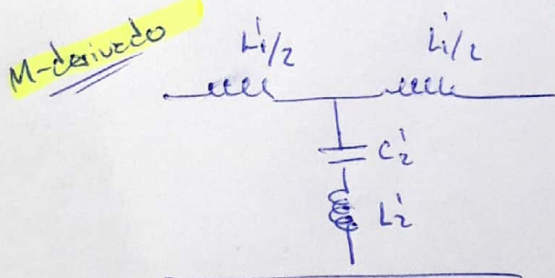 M-derivado
L₁'/2
L₁'/2
C₂'
L₂'